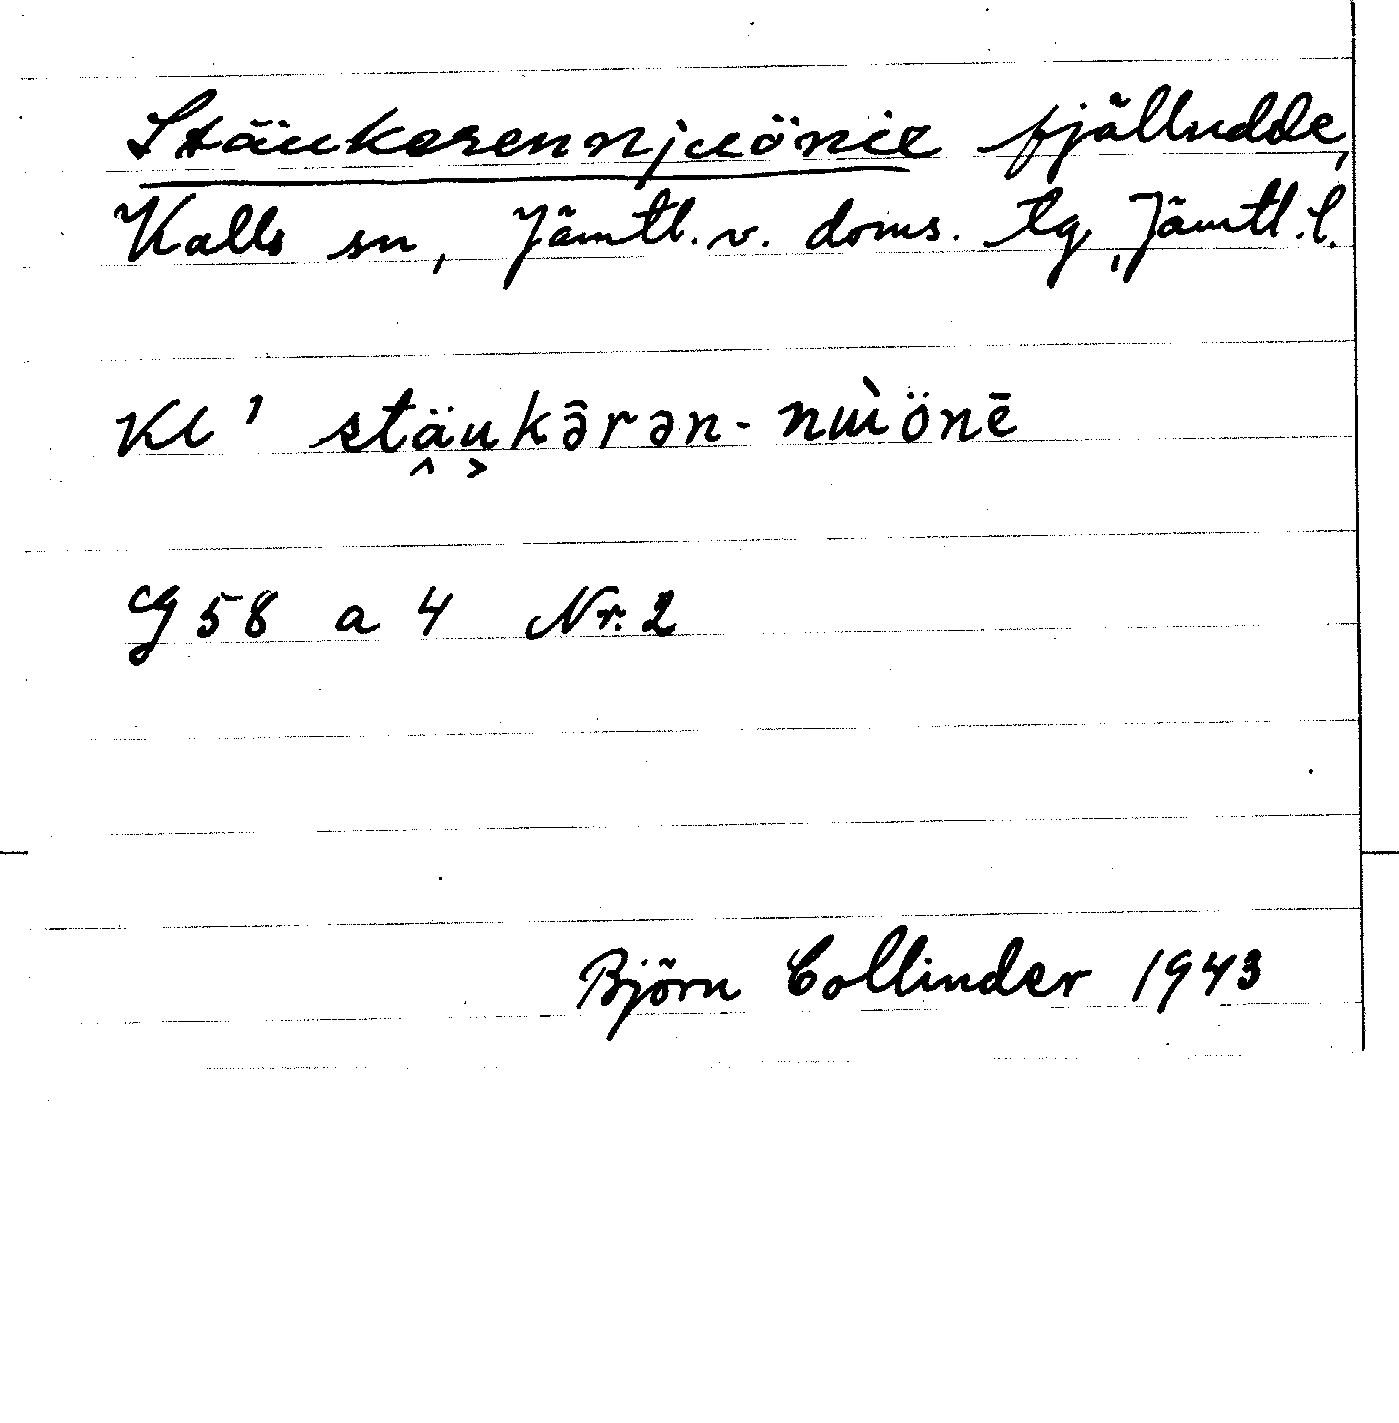 Stäukerennjuönie fjälludde,
Kalls sn, Jämtl. v. doms. tg, Jämtl. l.
Kl 1 stä̭u̬kə̂rən-nɯ̀önē
G 58 a 4 Nr. 2
Björn Collinder 1943